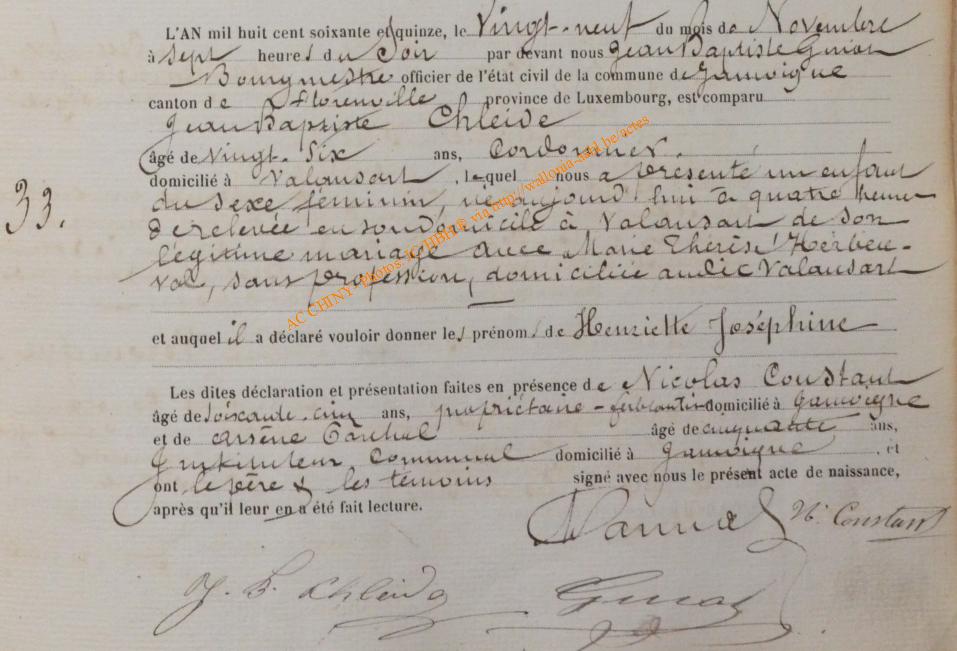 L'AN mil huit cent soixante et quinze, le Vingt-neuf du mois de Novembre
à sept heures du Soir par devant nous Jean Baptiste Guiot
Bourgmestre officier de l'état civil de la commune de Jamoigne
canton de Florenville province de Luxembourg, est comparu
Jean Baptiste Chleide
âgé de vingt-six ans, Cordonnier.
domicilié à Valansart, lequel nous a présenté un enfant
33.
du sexe féminin, né aujourd'hui à quatre heures
de relevée en son domicile à Valansart de son
légitime mariage avec Marie Thérèse Herbeu-
val, sans profession, domiciliée audit Valansart
et auquel il a déclaré vouloir donner les prénoms de Henriette Joséphine
Les dites déclaration et présentation faites en présence de Nicolas Constant
âgé de soixante-cinq ans, propriétaire-ferblantier domicilié à Jamoigne
et de Arsène âgé de cinquante ans,
Instituteur communal domicilié à Jamoigne, et
ont le père & les témoins signé avec nous le présent acte de naissance,
après qu'il leur en a été fait lecture.
N. Constant
J. B. Chleide Guiot
AC CHINY - Photos IG HBH © via http://wallonia-asbl.be/actes